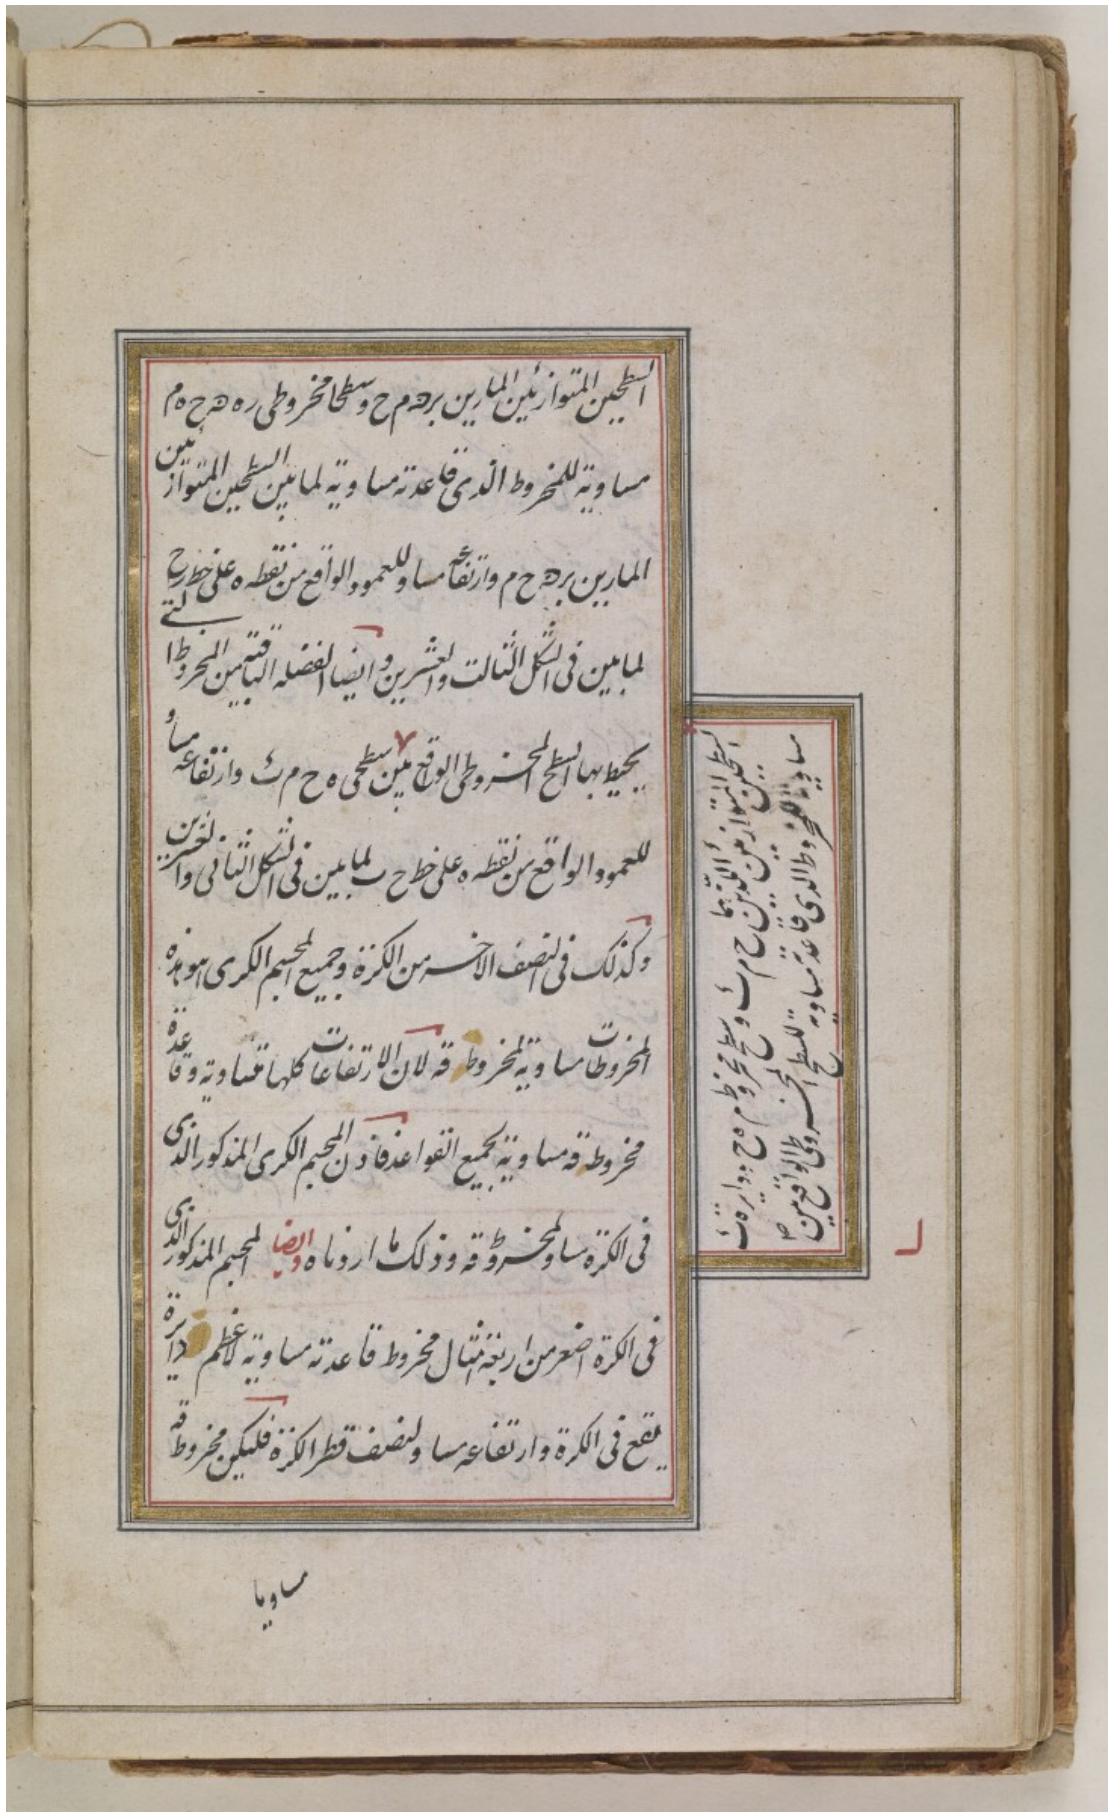 السطحين المتوازئين المارين بر ه م ح وسطحا مخروطى ر ه هـ ح ه م
مساوية للمخروط الذى قاعدته مساوية لما بين السطحين المتوازئين
المارين بر ه ح م وارتفاعه مساو للعمود الواقع من نقطه ه على خط ر ح
لما بين فى الشكل الثالث والعشرين وايضا الفضله الباقية من المخروط التى
يحيط بها السطح المخروطى الواقع بين سطحى ه ح م ث وارتفاعه مساو
للعمود الواقع من نقطه ه على خط ح ب لما بين فى الشكل الثانى والعشرين
وكذلك فى النصف الاخر من الكرة وجميع المجسم الكرى هو هذه
المخروطات مساوية لمخروط قه لان الارتفاعات كلها متساوية وقاعدة
مخروط قه مساوية لجميع القواعد فاذن المجسم الكرى المذكور الذى
فى الكرة مساو لمخروط قه وذلك ما اردناه وايضا المجسم المذكور الذى
فى الكرة اصغر من اربعة امثال مخروط قاعدته مساوية لاعظم دائرة
يقع فى الكرة وارتفاعه مساو لنصف قطر الكرة فليكن مخروط قه
مساويا
مساوية للمخروط الذى قاعدته مساوية للسطح المخروطى الواقع بين
السطحين المتوازيين الذين ح م ث وسطح مخروط م ه ح